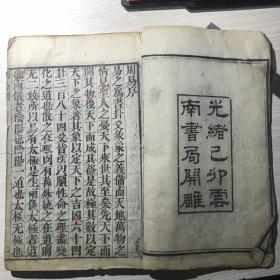 光緒己卯雲
南書局開雕
周易序
易之為書卦爻彖象之義備而天地萬物之
情見聖人之憂天下來世其至矣先天下而
開其物後天下而成其務是故極其數以定
天下之象著其象以定天下之吉凶六十四
卦三百八十四爻皆所以順性命之理盡變
化之道也散之在理則有萬殊統之在道則
无二致所以易有太極是生兩儀太極者道
也兩儀者陰陽也陰陽一道也太極无極也